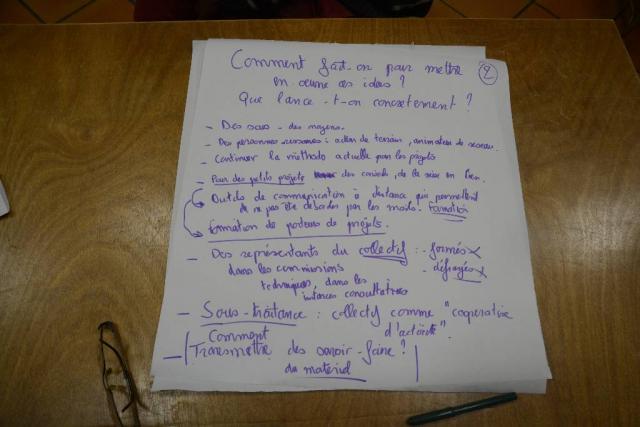 Comment fait-on pour mettre
en œuvre ces idées ?
2
Que lance-t-on concrètement ?
- Des sous - des moyens.
- Des personnes ressources : acteur de terrain, animateur de réseau.
- Continuer la méthodo actuelle par les projets
- Pour des petits projets des conseils, de la mise en lien.
Outils de communication à distance qui permettent
de ne pas être débordés par les mails. Formation
Formation de porteurs de projets.
- Des représentants du collectif : - formés
dans les commissions - défrayés
techniques, dans les
instances consultatives
- Sous-traitance : collectif comme "coopérative
d'activité".
Comment
- Transmettre des savoir-faire ?
du matériel